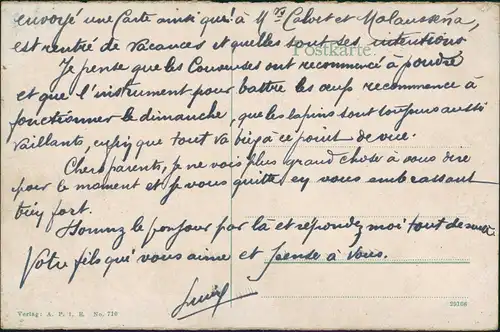 envoyé une Carte ainsi que à Mrs Calvet et Malausséna,
est rentré de Vacances et quelles sont ses intentions
Postkarte.
Je pense que les Couseuses ont recommencé à pondre
et que l'instrument pour battre les œufs recommence à
fonctionner le dimanche, que les lapins sont toujours aussi
vaillants, enfin que tout va bien à ce point de vue.
Chers parents, je ne vois plus grand chose à vous dire
pour le moment et je vous quitte en vous embrassant
bien fort.
Donnez le bonjour par là et répondez moi tout de suite
Votre fils qui vous aime et pense à Vous.
Verlag: A. P. i. E. No. 716
29108